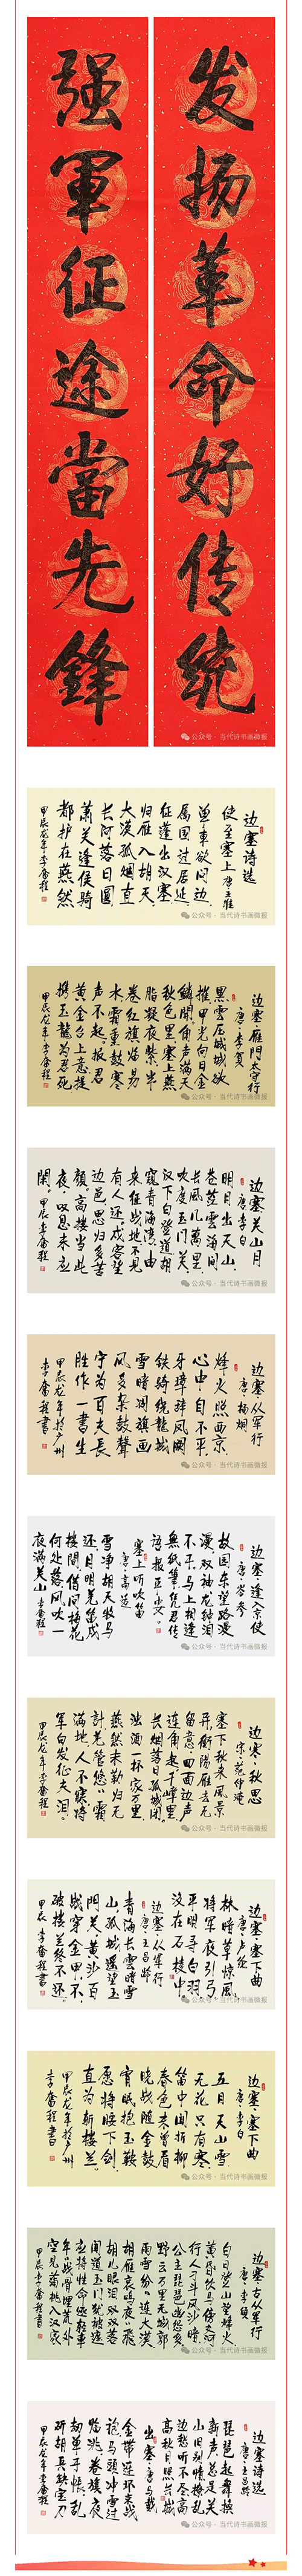 发扬革命好传统
强軍征途當先鋒
公众号 · 当代诗书画微报
边塞诗选
使至塞上 唐 王维
单車欲问边
属国过居延
征蓬出汉塞
归雁入胡天
大漠孤烟直
长河落日圆
萧关逢候骑
都护在燕然
甲辰龙年 李奮程
公众号 · 当代诗书画微报
边塞·雁門太守行
唐·李賀
黑雲压城城欲
摧甲光向日金
鳞開角声满天
秋色里塞上燕
脂凝夜紫半
卷红旗临易
水霜重鼓寒
声不起报君
黄金台上意提
携玉龍为君死
甲辰龙年 李奮程
公众号 · 当代诗书画微报
边塞·关山月
唐·李白
明月出天山
苍茫雲海间
长風几萬里
吹度玉门关
汉下白登道胡
窺青海湾由
来征战地不见
有人还戍客望
边邑思归多苦
顏高楼当此
夜叹息未应
閑 甲辰 李奮程
公众号 · 当代诗书画微报
边塞·从军行
唐·楊炯
烽火照西京
心中自不平
牙璋辞凤阙
铁骑绕龍城
雪暗凋旗画
风多杂鼓聲
宁为百夫長
胜作一書生
甲辰龙年於广州
李奮程書
公众号 · 当代诗书画微报
边塞·逢入京使
唐·岑参
故园东望路漫
漫双袖龙钟泪
不干马上相逢
無纸筆凭君传
语报平安
塞上听吹笛
唐·高适
雪净胡天牧马
还月明羌笛戍
楼間借问梅花
何处落风吹一
夜满关山 李奮程
公众号 · 当代诗书画微报
边塞·秋思
宋·范仲淹
塞下秋来風景
异衡陽雁去无
留意四面边声
连角起千嶂里
长烟落日孤城闭
浊酒一杯家万里
燕然未勒归无
計羌管悠悠霜
满地人不寐将
军白发征夫泪
甲辰龙年 李奮程
公众号 · 当代诗书画微报
边塞·塞下曲
唐·卢纶
林暗草惊風
将军夜引弓
平明寻白羽
没在石棱中
边塞·从军行
唐·王昌龄
青海长雲暗雪
山孤城遥望玉
門关黄沙百
战穿金甲不
破楼兰终不还
甲辰 李奮程書
公众号 · 当代诗书画微报
边塞·塞下曲
唐·李白
五月天山雪
无花只有寒
笛中闻折柳
春色未曾看
晓战随金鼓
宵眠抱玉鞍
愿将腰下剑
直为斩楼兰
甲辰龙年於广州
李奮程書
公众号 · 当代诗书画微报
边塞·古从军行
唐·李頎
白日登山望烽火
黄昏饮马傍交河
行人刁斗风沙暗
公主琵琶幽怨多
野雲万里无城郭
雨雪纷纷连大漠
胡雁哀鳴夜夜飛
胡儿眼泪双双落
闻道玉门犹被遮
应将性命逐轻車
年年战骨埋荒外
空见蒲桃入汉家
甲辰 李奮程書
公众号 · 当代诗书画微报
边塞诗选
唐·王昌龄
琵琶起舞换
新声总是关
山旧别情撩乱
边愁听不尽高
高秋月照长城
出塞 唐·马戴
金带连环束战
袍马頭冲雪过
临洮卷旗夜
劫单于帐乱
斫胡兵缺宝刀
甲辰龙年 李奮程
公众号 · 当代诗书画微报